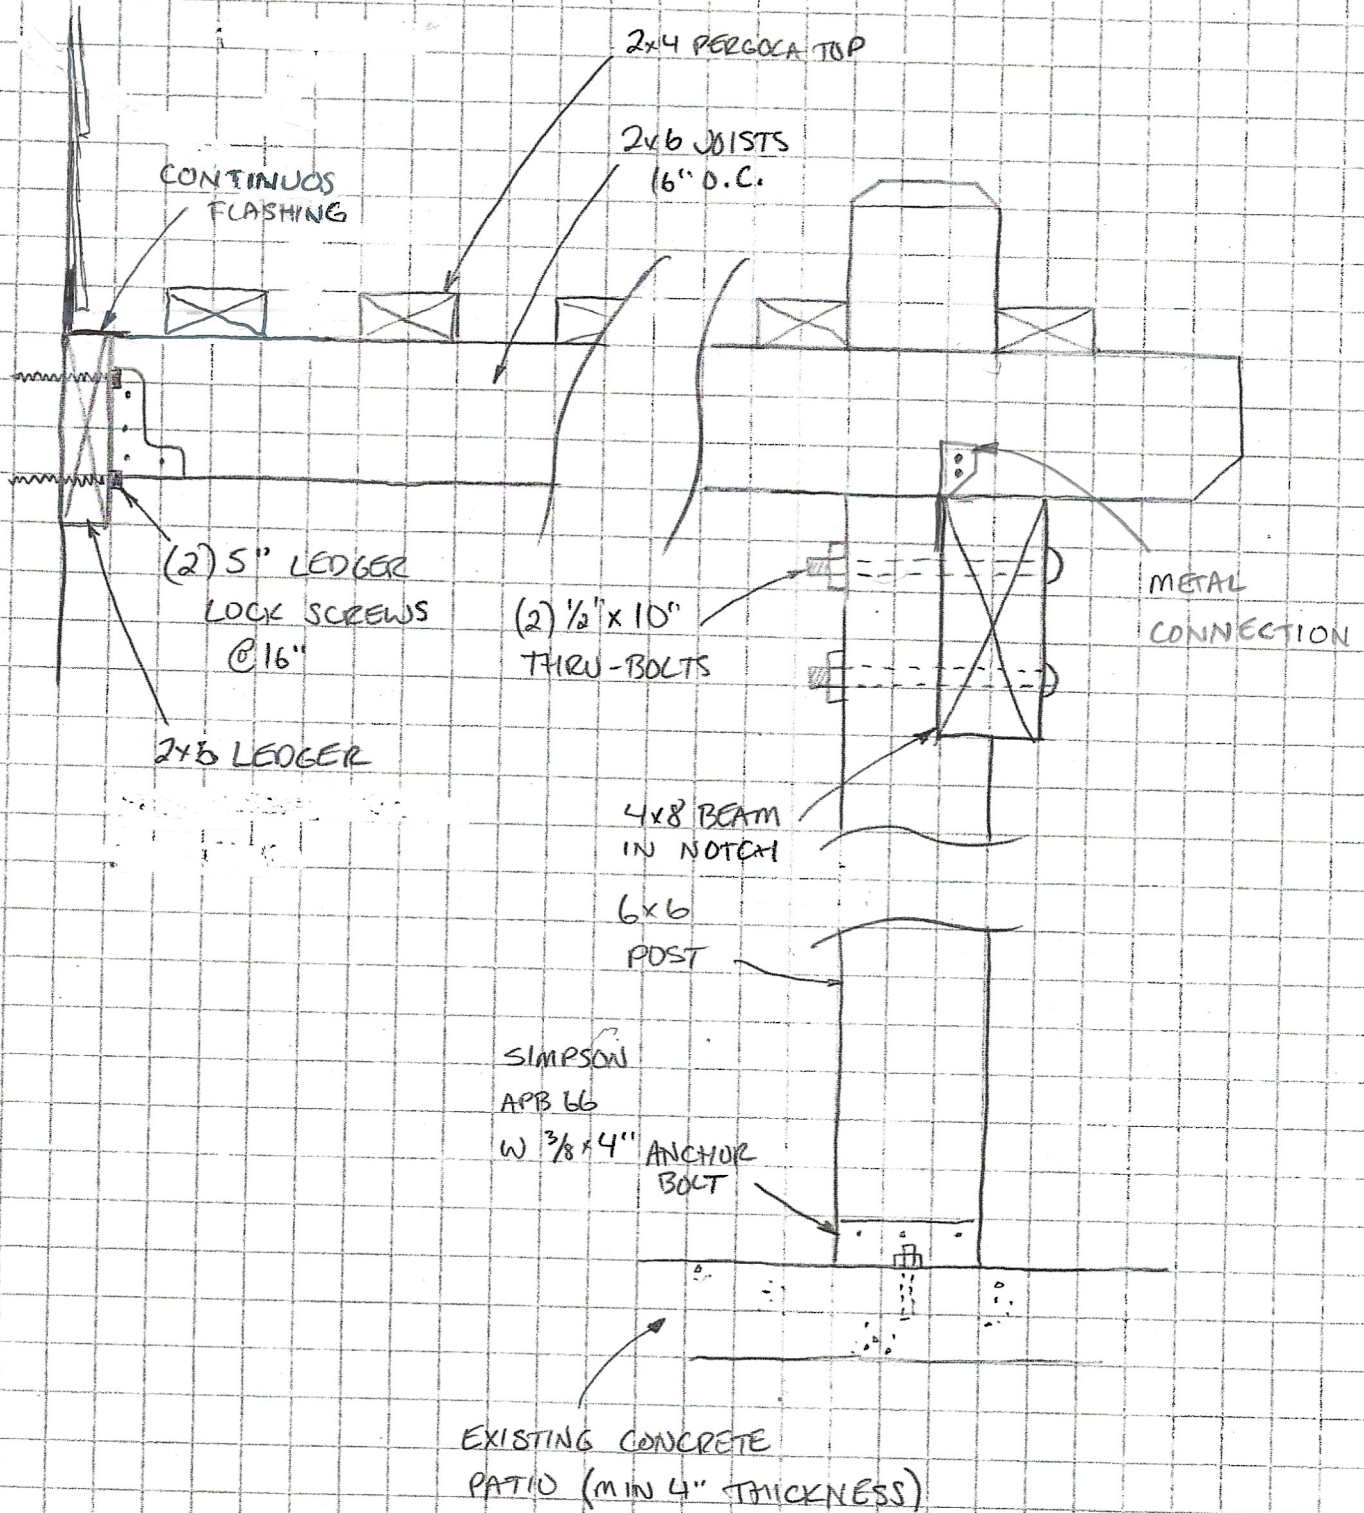 2x4 PERGOLA TOP
2x6 JOISTS
16" O.C.
CONTINUOS
FLASHING
(2) 5" LEDGER
LOCK SCREWS
@ 16"
2x8 LEDGER
(2) 1/2" x 10"
THRU-BOLTS
METAL
CONNECTION
4x8 BEAM
IN NOTCH
6x6
POST
SIMPSON
APB 66
W 3/8 x 4" ANCHOR
BOLT
EXISTING CONCRETE
PATIO (MIN 4" THICKNESS)